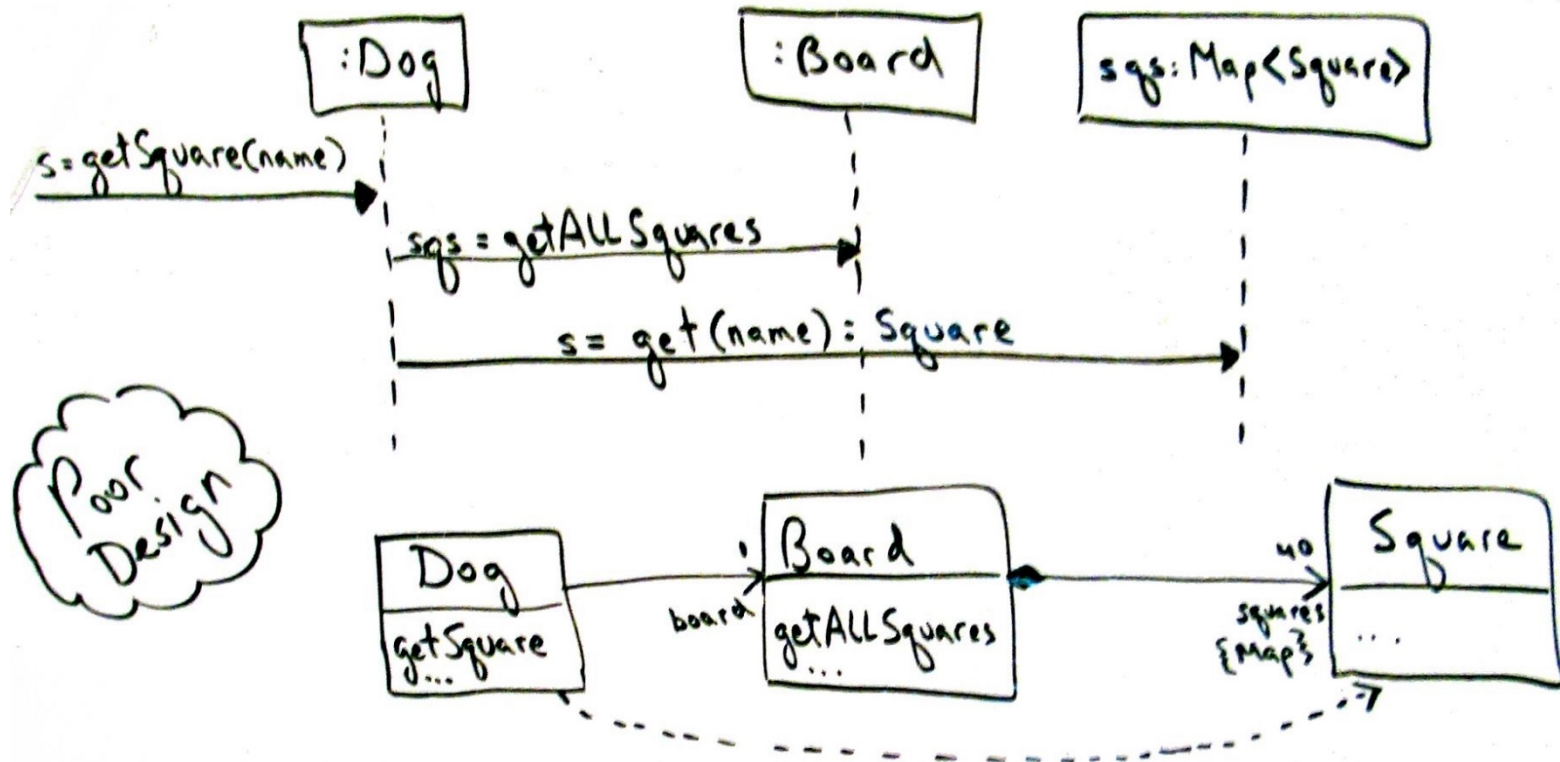 :Dog
:Board
sqs:Map<Square>
s=getSquare(name)
sqs = getALLSquares
s= get(name): Square
Poor
Design
Dog
getSquare
...
1
board
Board
getALLSquares
...
40
squares
{Map}
Square
...